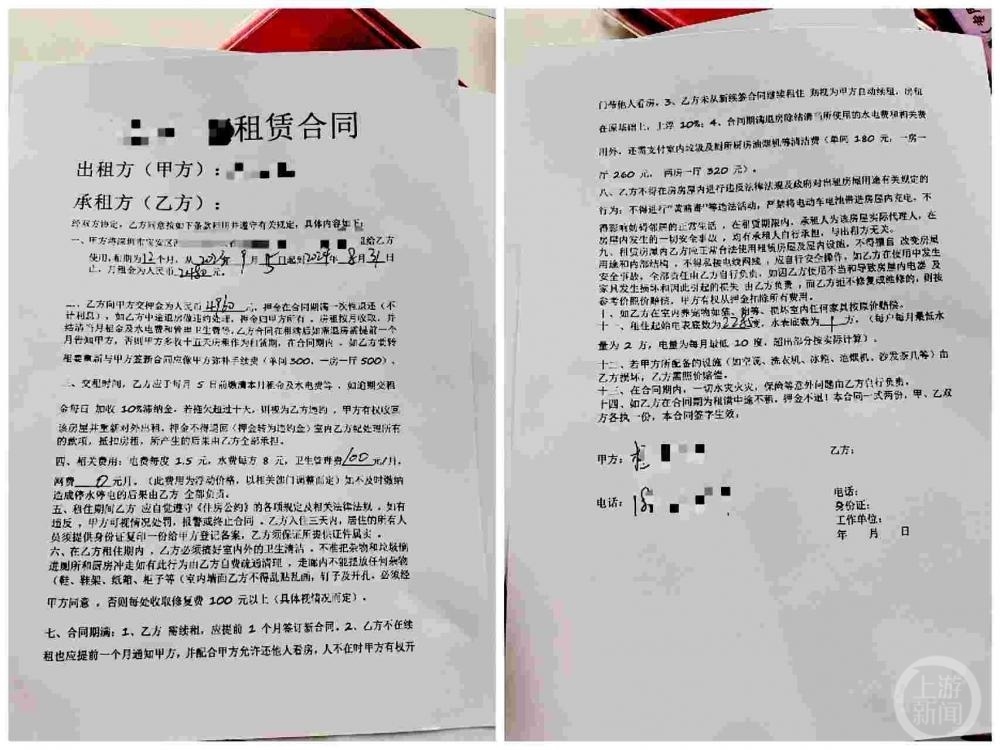 租赁合同
出租方（甲方）：
承租方（乙方）：
经双方协定，乙方同意按如下条款租用并遵守有关规定，具体内容如下：
一、甲方将深圳市宝安区 租给乙方
使用，租期为12个月，从2023年9月5日起到2024年8月31日
止，月租金为人民币2480元。
二、乙方向甲方交押金为人民币4960元，押金在合同期满一次性退还（不
计利息），如乙方中途退房做违约处理，押金归甲方所有。房租按月收取，并
结清当月租金及水电费和管理卫生费等，乙方合同在租续后如需退房需提前一个
月告知甲方，否则甲方多收十五天房租作为租赁期，在合同期内，如乙方要转
租要重新与甲方签新合同应像甲方弥补手续费（单间300、一房一厅500）、
三、交租时间，乙方应于每月 5 日前缴清本月租金及水电费等，如逾期交租
金每日 加收 10%滞纳金，若拖欠超过十天，则视为乙方违约，甲方有权收回
该房屋并重新对外出租，押金不得退回（押金转为违约金）室内乙方纪处理所有
的款项，抵扣房租，所产生的后果由乙方全部承担。
四、相关费用：电费每度 1.5 元，水费每方 8 元，卫生管理费100元/月，
网费 0 元月，（此费用为浮动价格，以相关部门调整而定）如不及时缴纳
造成停水停电的后果由乙方 全部负责。
五、租住期间乙方 应自觉遵守《住房公约》的各项规定及相关法律法规，如有
违反，甲方可视情况处罚，报警或终止合同，乙方入住三天内，居住的所有人
员须提供身份证复印一份给甲方登记备案，乙方须保证所提供证件属实。
六、在乙方租住期内，乙方必须搞好室内外的卫生清洁，不准把杂物和垃圾倒
进厕所和厨房冲走如有此行为由乙方自费疏通清理，走廊内不能摆放任何杂物
（鞋、鞋架、纸箱、柜子等（室内墙面乙方不得乱贴乱画，钉子及开孔，必须经
甲方同意，否则每处收取修复费 100 元以上（具体视情况而定）。
七、合同期满：1、乙方 需续租，应提前 1 个月签订新合同，2、乙方不在续
租也应提前一个月通知甲方，并配合甲方允许还他人看房，人不在时甲方有权开
门带他人看房，3、乙方未从新续签合同继续租住 则视为甲方自动续租，房租
在原基础上，上浮 10%；4、合同期满退房除结清当所使用的水电费和相关费
用外，还需支付室内垃圾及厕所厨房油烟机等清洁费（单间 180 元，一房一
厅 260 元， 两房一厅 320 元）。
八、乙方不得在房屋内进行违反法律法规及政府对出租房屋用途有关规定的
行为；不得进行"黄赌毒"等违法活动，严禁将电动车电池带进房屋内充电，不
得影响妨碍邻居的正常生活，在租赁期限内，承租人为该房屋实际代理人，在
房屋内发生的一切安全事故，均有承租人自行承担，与出租方无关。
九、租赁房屋内乙方应正常合法使用租赁房屋及屋内设施，不得擅自 改变房屋
用途和内部结构，不得私接电线网线，应自行安全操作，如乙方在使用中发生
安全事故，全部责任由乙方自行负责，如因乙方使用不当和导致房屋内电器 及
家具发生损坏和因此引起的损失 由乙方负责，而乙方拒不修复或维修的，则按
参考价照价赔偿，甲方有权从押金扣除所有费用。
十、如乙方在室内养宠物如猫、狗等、损坏室内任何家具按原价赔偿。
十一、租住起始电表底数为2285度，水表底数为1方，（每户每月最低水
量为 2 方，电量为每月最低 10 度，超出部分按实际计算）。
十二、若甲方所配备的设施（如空调、洗衣机、冰箱、油烟机、沙发茶几等）由
乙方损坏，乙方需照价赔偿。
十三、在合同期内，一切水灾火灾，保险等意外问题由乙方自行负责。
十四、如乙方在合同期为租满中途不租，押金不退！本合同一式两份，甲、乙双
方各执一份，本合同签字生效；
甲方： 乙方：
电话： 电话：
身份证：
工作单位：
年 月 日
上游
新闻